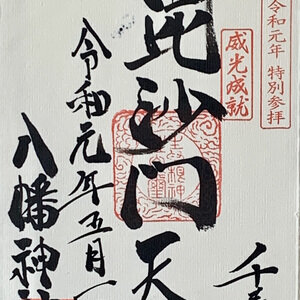 令和元年 特別参拝
威光成就
毘沙門天
令和元年五月一
八幡神社